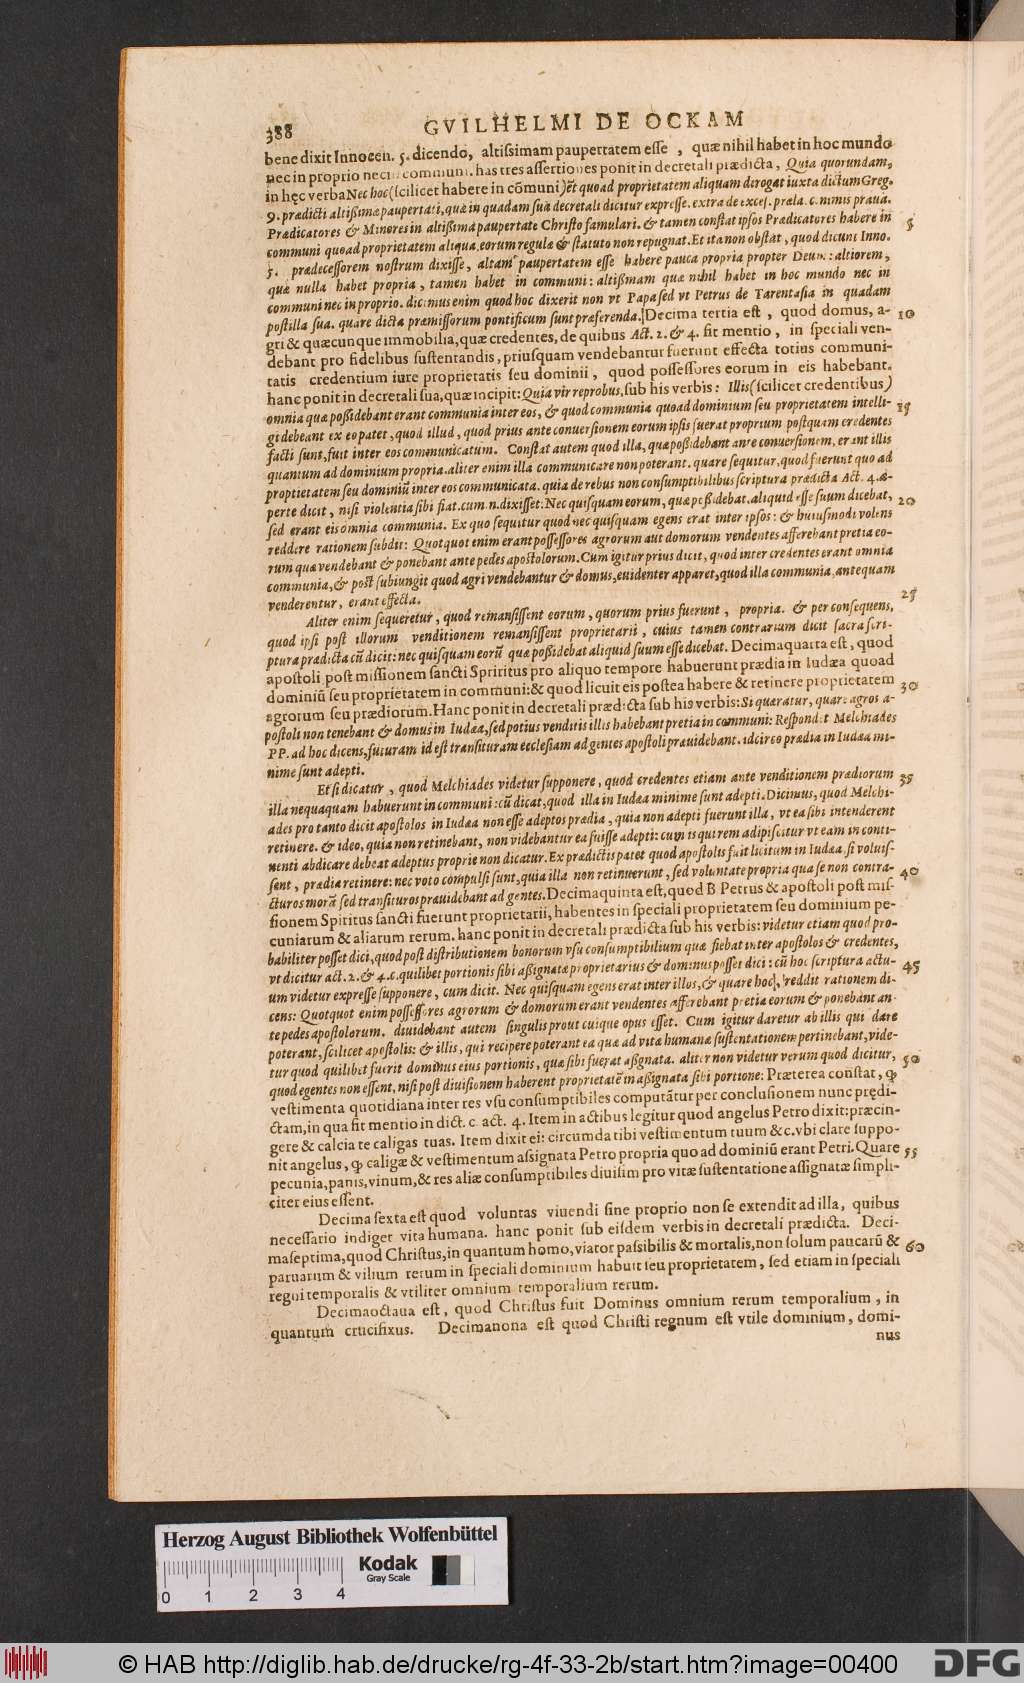 388
GVILHELMI DE OCKAM
bene dixit Innocen. 5. dicendo, altissimam paupertatem esse, quæ nihil habet in hoc mundo
nec in proprio nec in communi. has tres assertiones ponit in decretali prædicta, Quia quorundam,
in hęc verba Nec hoc (scilicet habere in cōmuni) ēt quo ad proprietatem aliquam derogat iuxta dictum Greg.
9. prædicti altissimæ paupertati, quæ in quadam sua decretali dicitur expresse. extra de excel. præla. c. nimis praua.
Prædicatores & Minores in altissima paupertate Christo famulari. & tamen constat ipsos Prædicatores habere in
communi quoad proprietatem aliqua, eorum regulæ & statuto non repugnat. Et ita non obstat, quod dicunt Inno. 5
5. prædecessorem nostrum dixisse, altam paupertatem esse habere pauca propria propter Deum: altiorem,
quæ nulla habet propria, tamen habet in communi: altissimam quæ nihil habet in hoc mundo nec in
communi nec in proprio. dicimus enim quod hoc dixerit non vt Papa sed vt Petrus de Tarentasia in quadam
postilla sua. quare dicta præmissorum pontificum sunt præferenda. Decima tertia est, quod domus, a- 10
gri & quæcunque immobilia, quæ credentes, de quibus Act. 2. & 4. fit mentio, in speciali ven-
debant pro fidelibus sustentandis, priusquam vendebantur fuerunt effecta totius communi-
tatis credentium iure proprietatis seu dominii, quod possessores eorum in eis habebant.
hanc ponit in decretali sua, quæ incipit: Quia vir reprobus, sub his verbis: Illis (scilicet credentibus)
omnia quæ possidebant erant communia inter eos, & quod communia quoad dominium seu proprietatem intelli- 15
gi debeant ex eo patet, quod illud, quod prius ante conuersionem eorum ipsis fuerat proprium postquam credentes
facti sunt, fuit inter eos communicatum. Constat autem quod illa, quæ possidebant ante conuersionem, erant illis
quantum ad dominium propria. aliter enim illa communicare non poterant. quare sequitur, quod fuerunt quo ad
proprietatem seu dominiū inter eos communicata. quia de rebus non consumptibilibus scriptura prædicta Act. 4. a-
perte dicit, nisi violentia sibi fiat. cum. n. dixisset: Nec quisquam eorum, quæ possidebat, aliquid esse suum dicebat, 20
sed erant eis omnia communia. Ex quo sequitur quod nec quisquam egens erat inter ipsos: & huiusmodi volens
reddere rationem subdit: Quotquot enim erant possessores agrorum aut domorum vendentes afferebant pretia eo-
rum quæ vendebant & ponebant ante pedes apostolorum. Cum igitur prius dicit, quod inter credentes erant omnia
communia, & post subiungit quod agri vendebantur & domus, euidenter apparet, quod illa communia, antequam
venderentur, erant effecta. 25
Aliter enim sequeretur, quod remansissent eorum, quorum prius fuerunt, propria. & per consequens,
quod ipsi post illorum venditionem remansissent proprietarii, cuius tamen contrarium dicit sacra scri-
ptura prædicta cū dicit: nec quisquam eorū quæ possidebat aliquid suum esse dicebat. Decimaquarta est, quod
apostoli post missionem sancti Spriritus pro aliquo tempore habuerunt prædia in Iudæa quoad
dominiū seu proprietatem in communi: & quod licuit eis postea habere & retinere proprietatem 30
agrorum seu prædiorum. Hanc ponit in decretali prædicta sub his verbis: Si quæratur, quare agros a-
postoli non tenebant & domus in Iudæa, sed potius venditis illis habebant pretia in communi: Respondet Melchiades
PP. ad hoc dicens, futuram id est transituram ecclesiam ad gentes apostoli præuidebant. idcirco prædia in Iudæa mi-
nime sunt adepti.
Et si dicatur, quod Melchiades videtur supponere, quod credentes etiam ante venditionem prædiorum 35
illa nequaquam habuerunt in communi: cū dicat, quod illa in Iudæa minime sunt adepti. Dicimus, quod Melchi-
ades pro tanto dicit apostolos in Iudæa non esse adeptos prædia, quia non adepti fuerunt illa, vt ea sibi intenderent
retinere. & ideo, quia non retinebant, non videbantur ea fuisse adepti: cum is qui rem adipiscitur vt eam in conti-
nenti abdicare debeat adeptus proprie non dicatur. Ex prædictis patet quod apostolis fuit licitum in Iudæa, si voluis-
sent, prædia retinere: nec voto compulsi sunt, quia illa non retinuerunt, sed voluntate propria qua se non contra- 40
cturos morā sed transituros præuidebant ad gentes. Decimaquinta est, quod B Petrus & apostoli post mis-
sionem Spiritus sancti fuerunt proprietarii, habentes in speciali proprietatem seu dominium pe-
cuniarum & aliarum rerum. hanc ponit in decretali prædicta sub his verbis: videtur etiam quod pro-
babiliter posset dici, quod post distributionem bonorum vsu consumptibilium quæ fiebat inter apostolos & credentes,
vt dicitur act. 2. & 4. c. quilibet portionis sibi assignatæ proprietarius & dominus posset dici: cū hoc scriptura actu- 45
um videtur expresse supponere, cum dicit. Nec quisquam egens erat inter illos, & quare hoc, reddit rationem di-
cens: Quotquot enim possessores agrorum & domorum erant vendentes afferebant pretia eorum & ponebant an-
te pedes apostolorum. diuidebant autem singulis prout cuique opus esset. Cum igitur daretur ab illis qui dare
poterant, scilicet apostolis: & illis, qui recipere poterant ea quæ ad vitæ humanæ sustentationem pertinebant, vide-
tur quod quilibet fuerit dominus eius portionis, quæ sibi fuerat assignata. aliter non videtur verum quod dicitur, 50
quod egentes non essent, nisi post diuisionem haberent proprietatē in assignata sibi portione: Præterea constat, ꝙ
vestimenta quotidiana inter res vsu consumptibiles computātur per conclusionem nunc prędi-
ctam, in qua fit mentio in dict. c. act. 4. Item in actibus legitur quod angelus Petro dixit: præcin-
gere & calcia te caligas tuas. Item dixit ei: circumda tibi vestimentum tuum &c. vbi clare suppo-
nit angelus, ꝙ caligæ & vestimentum assignata Petro propria quo ad dominiū erant Petri. Quare 55
pecunia, panis, vinum, & res aliæ consumptibiles diuisim pro vitæ sustentatione assignatæ simpli-
citer eius essent.
Decima sexta est quod voluntas viuendi sine proprio non se extendit ad illa, quibus
necessario indiget vita humana. hanc ponit sub eisdem verbis in decretali prædicta. Deci-
maseptima, quod Christus, in quantum homo, viator passibilis & mortalis, non solum paucarū & 60
paruarum & vilium rerum in speciali dominium habuit seu proprietatem, sed etiam in speciali
regni temporalis & vtiliter omnium temporalium rerum.
Decimaoctaua est, quod Christus fuit Dominus omnium rerum temporalium, in
quantum crucifixus. Decimanona est quod Christi regnum est vtile dominium, domi-
nus
Herzog August Bibliothek Wolfenbüttel
Kodak
Gray Scale
0 1 2 3 4
© HAB http://diglib.hab.de/drucke/rg-4f-33-2b/start.htm?image=00400
DFG